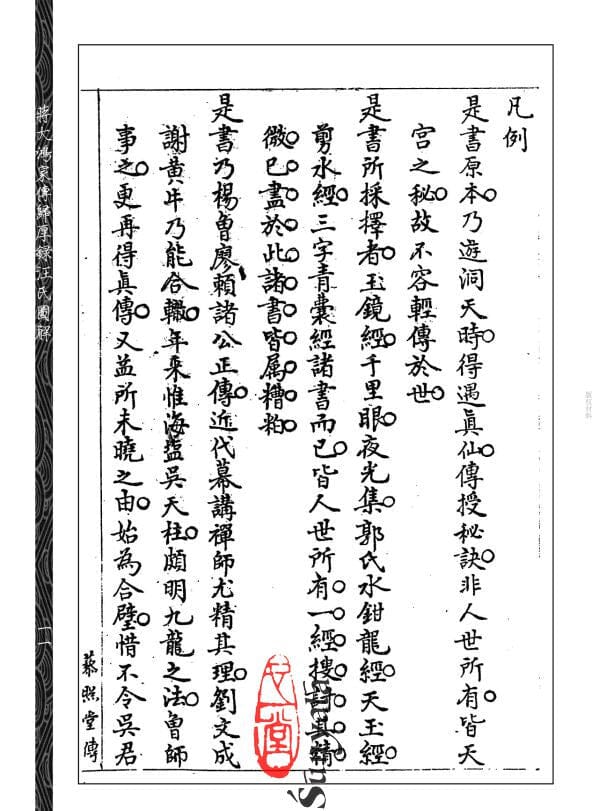 凡例
是書原本乃遊洞天時得遇眞仙傳授秘訣非人世所有皆天
宮之秘故不容輕傳於世
是書所採擇者玉鏡經千里眼夜光集郭氏水鉗龍經天玉經
剪水經三字青囊經諸書而已皆人世所有一經搜討其精
微已盡於此諸書皆属糟粕
是書乃楊曾廖賴諸公正傳近代幕講禪師尤精其理劉文成
謝黃牛乃能合轍年來惟海盐吳天柱頗明九龍之法曾師
事之更再得眞傳又益所未曉之由始為合璧惜不令吳君
蔣大鴻家傳歸厚錄汪氏圖解
一一
藜照堂傳
版权材料
Sunyata